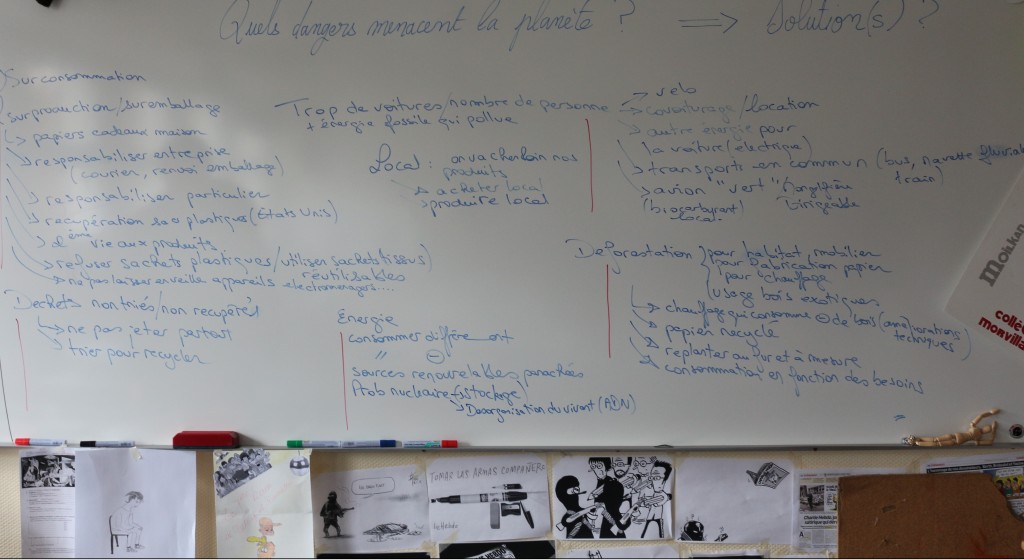 Quels dangers menacent la planète ? => Solution(s) ?
Surconsommation
surproduction/suremballage
-> papiers cadeaux maison
-> responsabiliser entreprise
(courrier, renvoi emballage)
-> responsabiliser particulier
-> récupération sac plastiques (États Unis)
-> 2ème vie aux produits
-> refuser sachets plastiques/utiliser sachets tissus)
réutilisables
-> ne pas laisser en veille appareils électroménagers....
Déchets non triés/non récupérés
-> ne pas jeter partout
-> trier pour recycler
Trop de voitures/nombre de personne
+ énergie fossile qui pollue
-> vélo
-> covoiturage/location
-> autre énergie pour
la voiture (électrique)
-> transports en commun (bus, navette fluviale
train)
-> avion "vert" Mongolfière
(biocarburant) Dirigeable
local
Local : on va cher loin nos
produits
-> acheter local
-> produire local
Énergie
consommer différemment
" ⊖
sources renouvelables panachées
Pb nucléaire -> stockage
-> Désorganisation du vivant (ADN)
Déforestation
pour habitat mobilier
pour fabrication papier
pour chauffage
usage bois exotiques
-> chauffage qui consomme ⊖ de bois (améliorations
techniques)
-> papier recyclé
-> replanter au fur et à mesure
-> consommation en fonction des besoins
=
MOLKKY
collè
morvilla
TOMAR LAS ARMAS COMPAÑERO